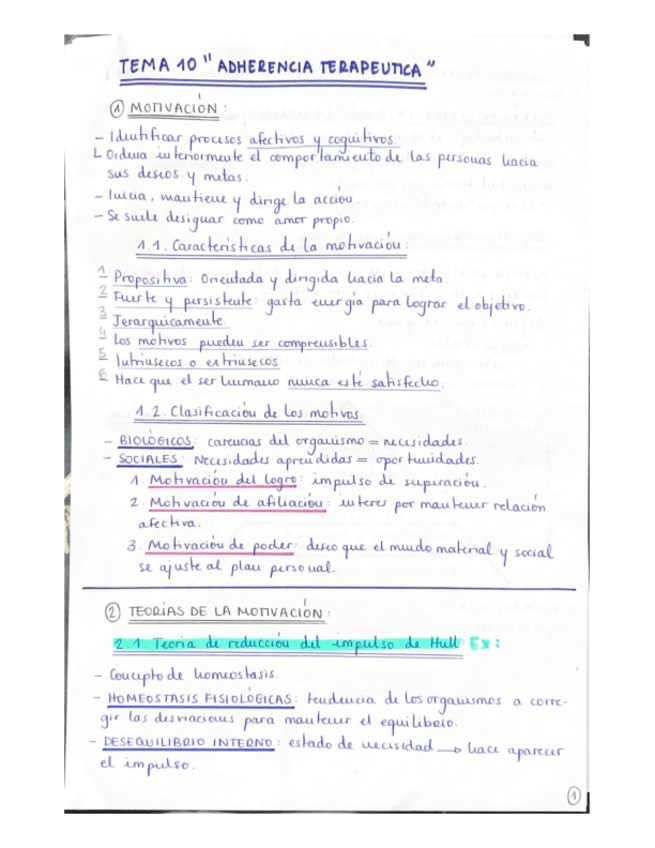 TEMA 10 "ADHERENCIA TERAPEUTICA"
① MOTIVACIÓN:
- Identificar procesos afectivos y cognitivos.
L Ordena interiormente el comportamiento de las personas hacia
sus deseos y metas.
- Inicia, mantiene y dirige la acción.
- Se suele designar como amor propio.
1.1. Características de la motivación:
1 Propositiva: Orientada y dirigida hacia la meta.
2 Fuerte y persistente: gasta energía para lograr el objetivo.
3 Jerarquicamente.
4 Los motivos pueden ser comprensibles.
5 Intrínsecos o extrínsecos
6 Hace que el ser humano nunca esté satisfecho.
1.2. Clasificación de los motivos.
- BIOLÓGICOS: carencias del organismo = necesidades.
- SOCIALES: Necesidades aprendidas = oportunidades.
1. Motivación del logro: impulso de superación.
2. Motivación de afiliación: interes por mantener relación
afectiva.
3. Motivación de poder: deseo que el mundo material y social
se ajuste al plan personal.
② TEORÍAS DE LA MOTIVACIÓN:
2.1. Teoría de reducción del impulso de Hull Ex:
- Concepto de homeostasis.
- HOMEOSTASIS FISIOLÓGICAS: tendencia de los organismos a corre-
gir las desviaciones para mantener el equilibrio.
- DESEQUILIBRIO INTERNO: estado de necesidad → hace aparecer
el impulso.
1